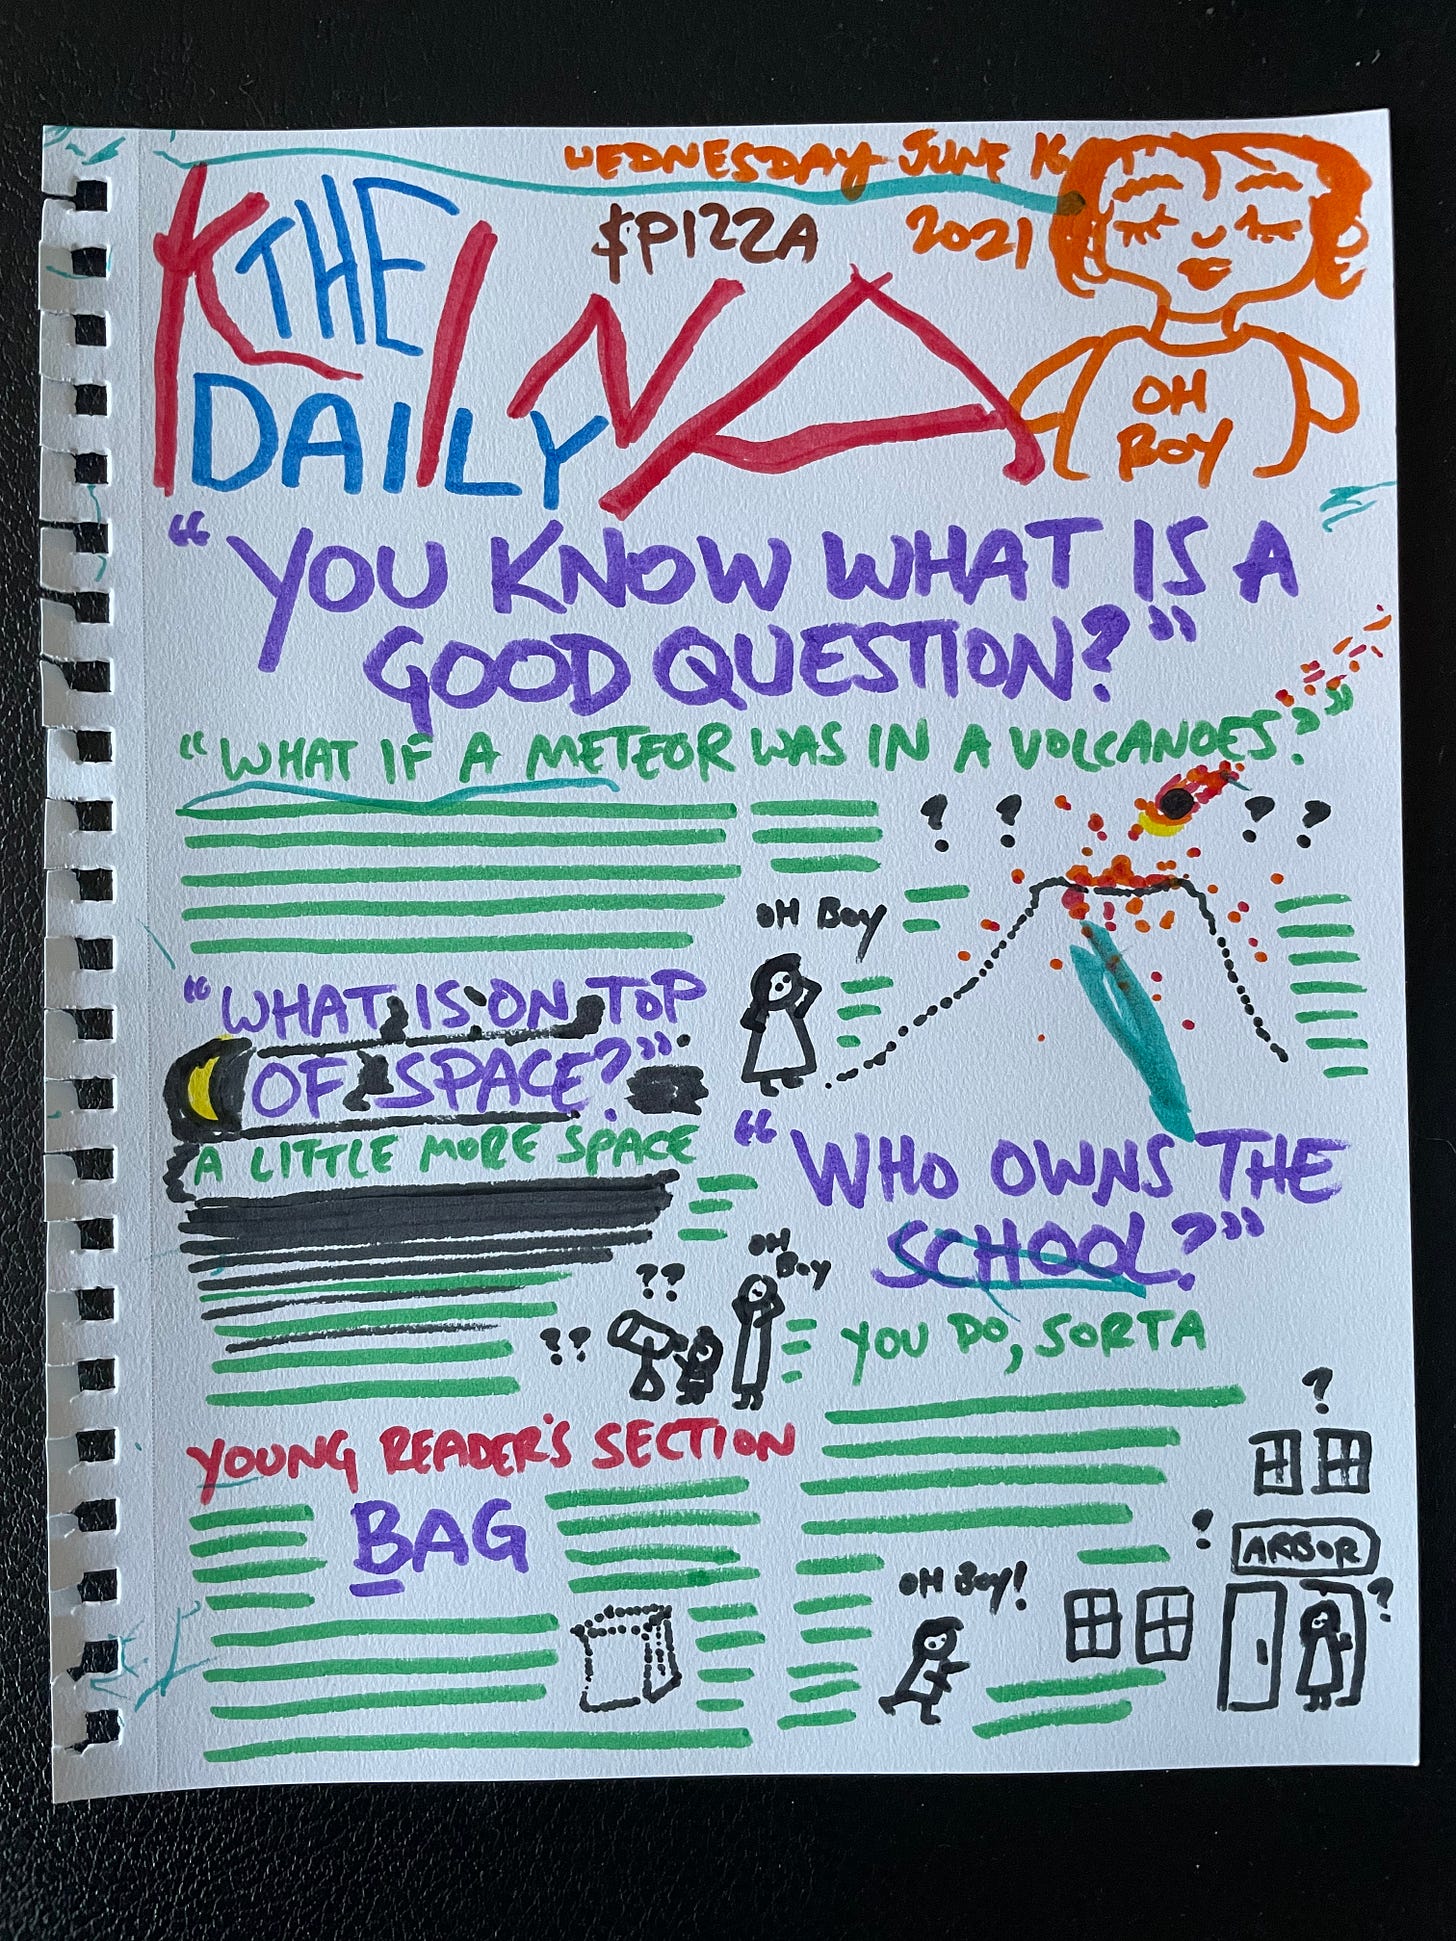 WEDNESDAY JUNE 16
2021
$PIZZA
THE
DAILY
KINA
OH
BOY
"YOU KNOW WHAT IS A
GOOD QUESTION?"
"WHAT IF A METEOR WAS IN A VOLCANOES?"
? ? ? ?
OH BOY
"WHAT IS ON TOP
OF SPACE?"
A LITTLE MORE SPACE
OH
BOY
??
??
"WHO OWNS THE
SCHOOL?"
YOU DO, SORTA
?
?
ARBOR
?
OH BOY!
YOUNG READER'S SECTION
BAG